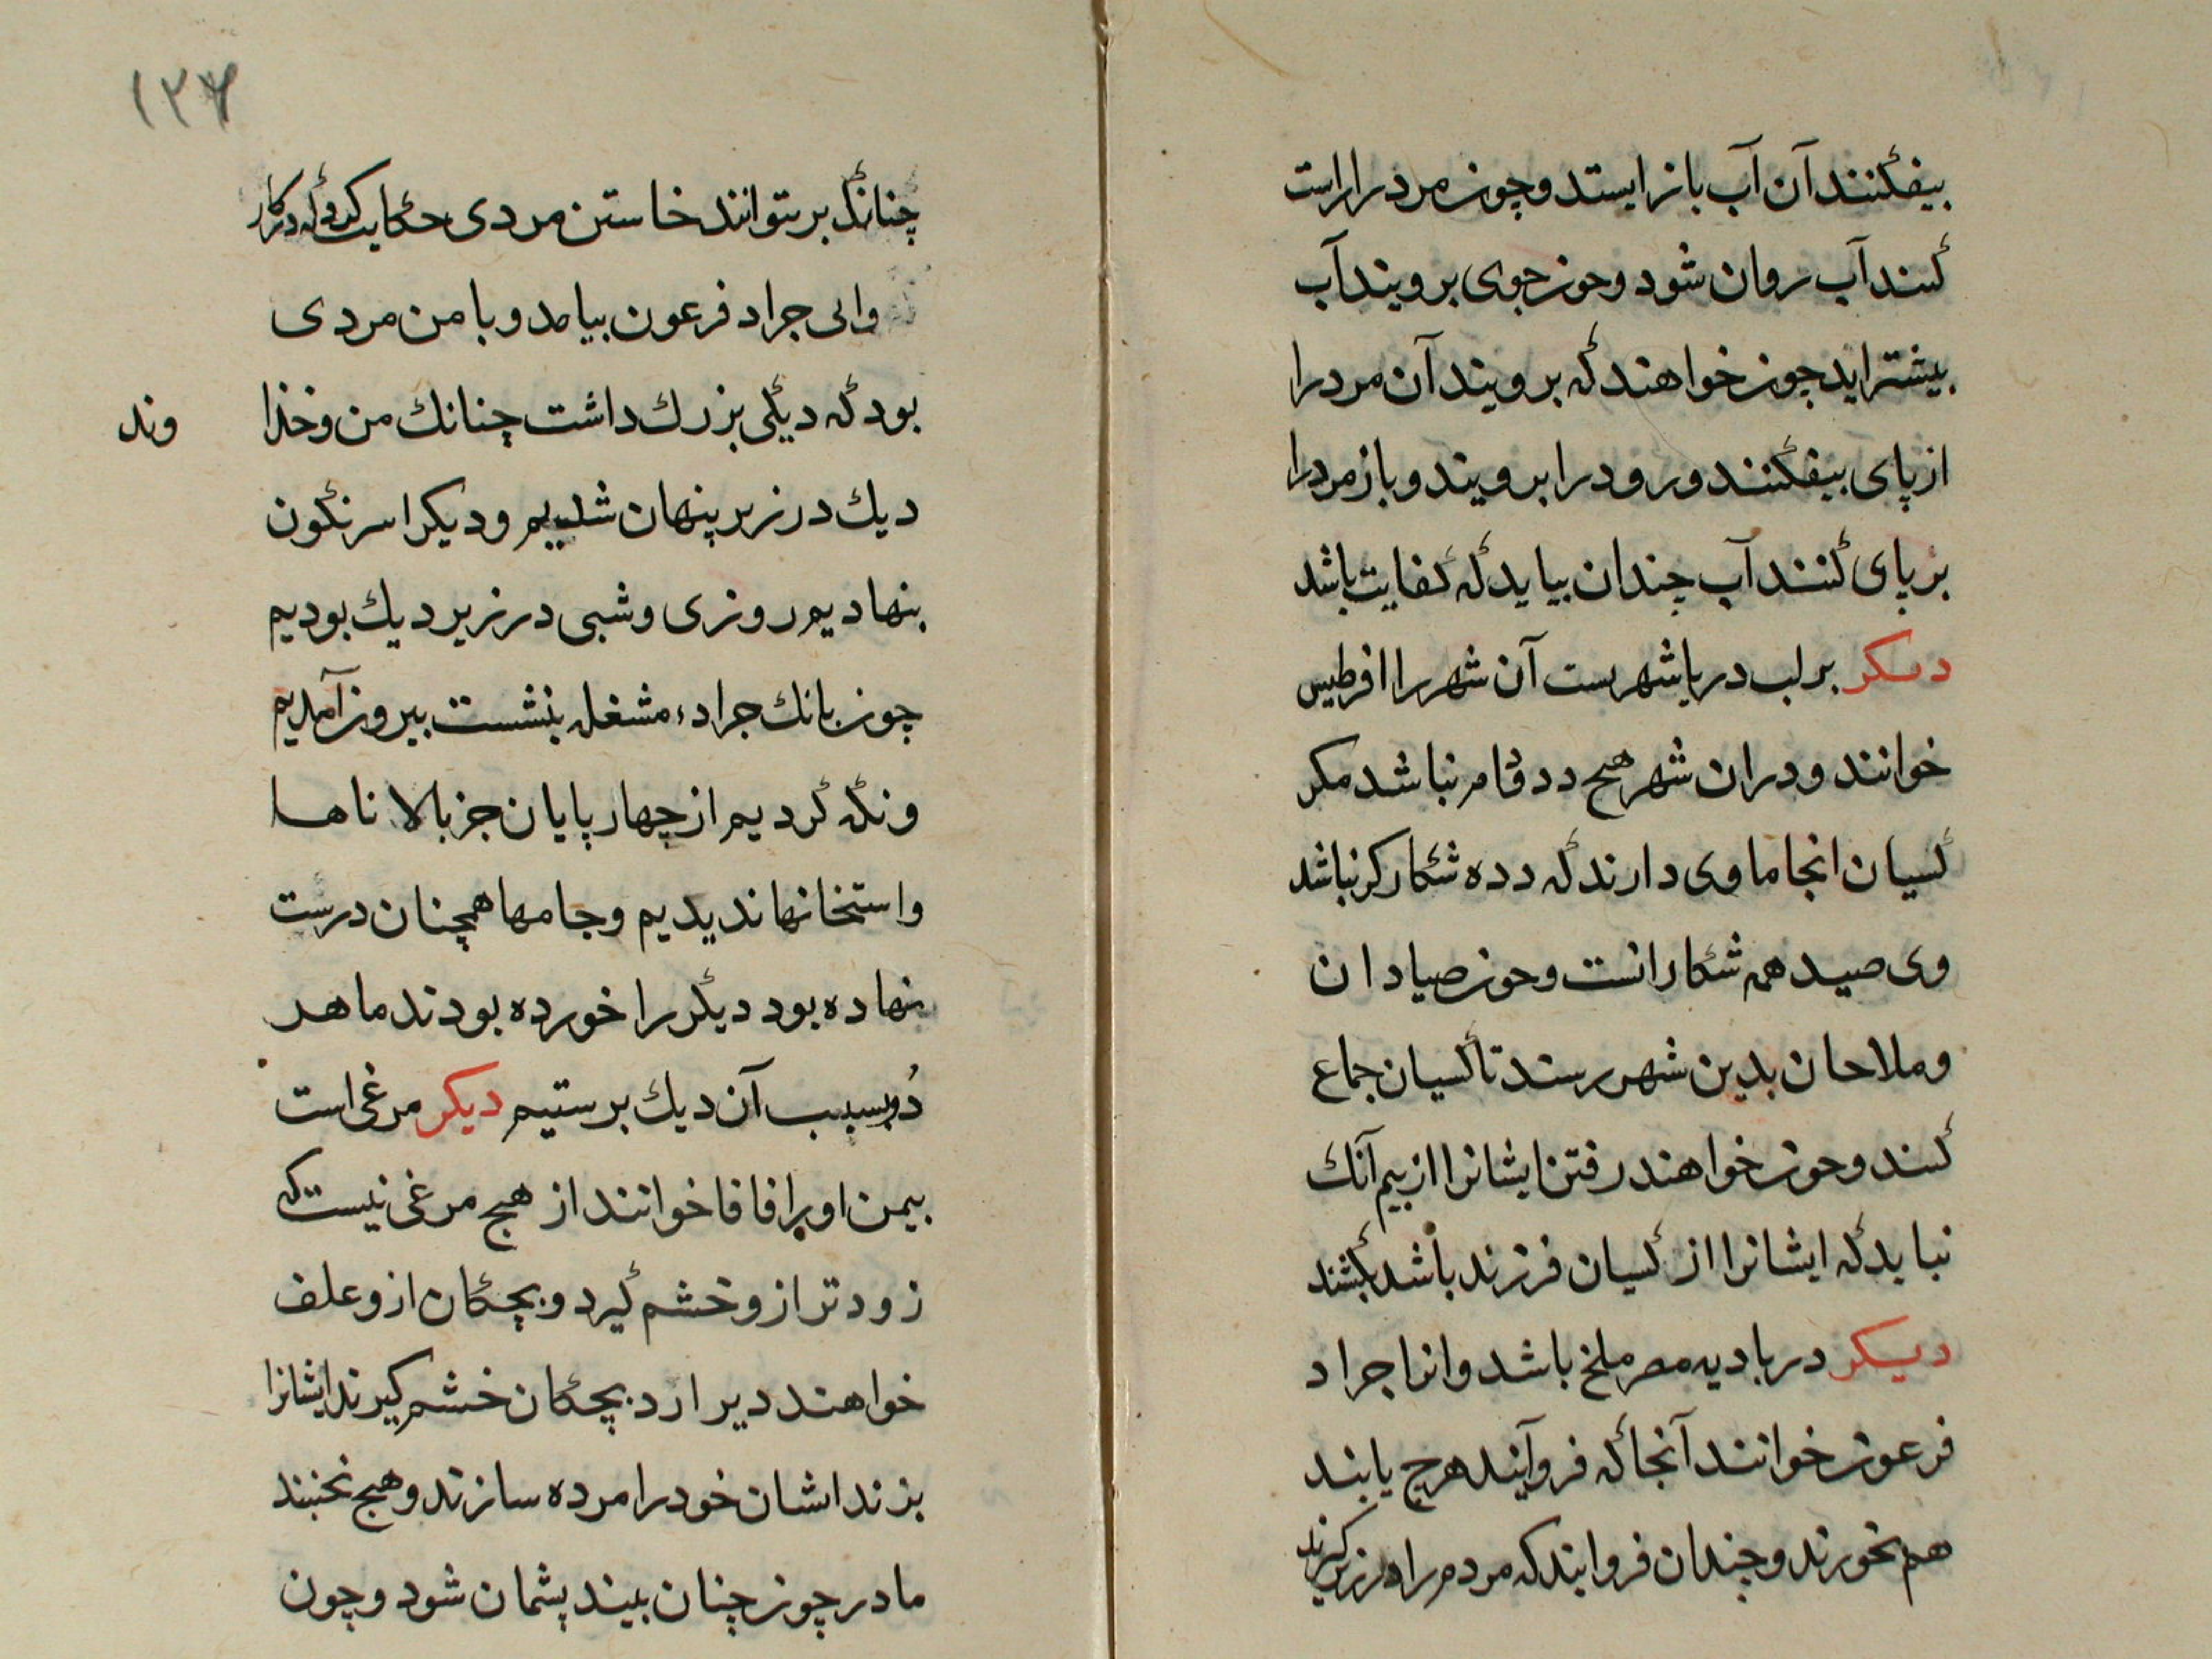 بیفکنند آن آب باز ایستد و چون مرد را راست
کنند آب روان شود و چون جوی بروبند آب
بیشتر اید چون خواهند که بروبند آن مرد را
از پای بیفکنند و رود را بروبند و باز مرد را
بر پای کنند آب چندان بیاید که کفایت باشد
دیکر بر لب دریا شهریست آن شهر را افرطیس
خوانند و دران شهر هیچ دد و دام نباشد مکر
کسیان انجا ماوی دارند که دده شکار کر نباشد
وی صید همه شکارانست و چون صیادان
و ملاحان بدین شهر رسند تا کسیان جماع
کنند و چون خواهند رفتن ایشانرا از بیم آنک
نباید که ایشانرا از کسیان فرزند باشد بکشند
دیکر در بادیه مصر ملخ باشد وانرا جراد
فرعون خوانند آنجا که فروآیند هرچ یابند
هم بخورند و چندان فروایند که مردم را در زیر کیرند
۱۲۷
چنانک بر نتوانند خاستن مردی حکایت کرد که در کار
والی جراد فرعون بیامد و با من مردی
بود که دیکی بزرک داشت چنانک من و خدا
وند
دیک در زیر پنهان شدیم و دیک را سرنکون
بنهادیم روزی و شبی در زیر دیک بودیم
چون بانک جراد و مشغله بنشست بیرون آمدیم
و نکه کردیم از چهارپایان جز بالاناها
و استخانها ندیدیم و جامها همچنان درست
نهاده بود دیکر را خورده بودند ما هر
دو بسبب آن دیک برستیم دیکر مرغی است
بیمن او را فافا خوانند از هیچ مرغی نیست که
زودتر ازو خشم کیرد و بچکان ازو علف
خواهند دیر ارد بچکان خشم کیرند ایشانرا
بزند اشان خود را مرده سازند و هیچ نجنبند
مادر چون چنان بیند پشمان شود و چون